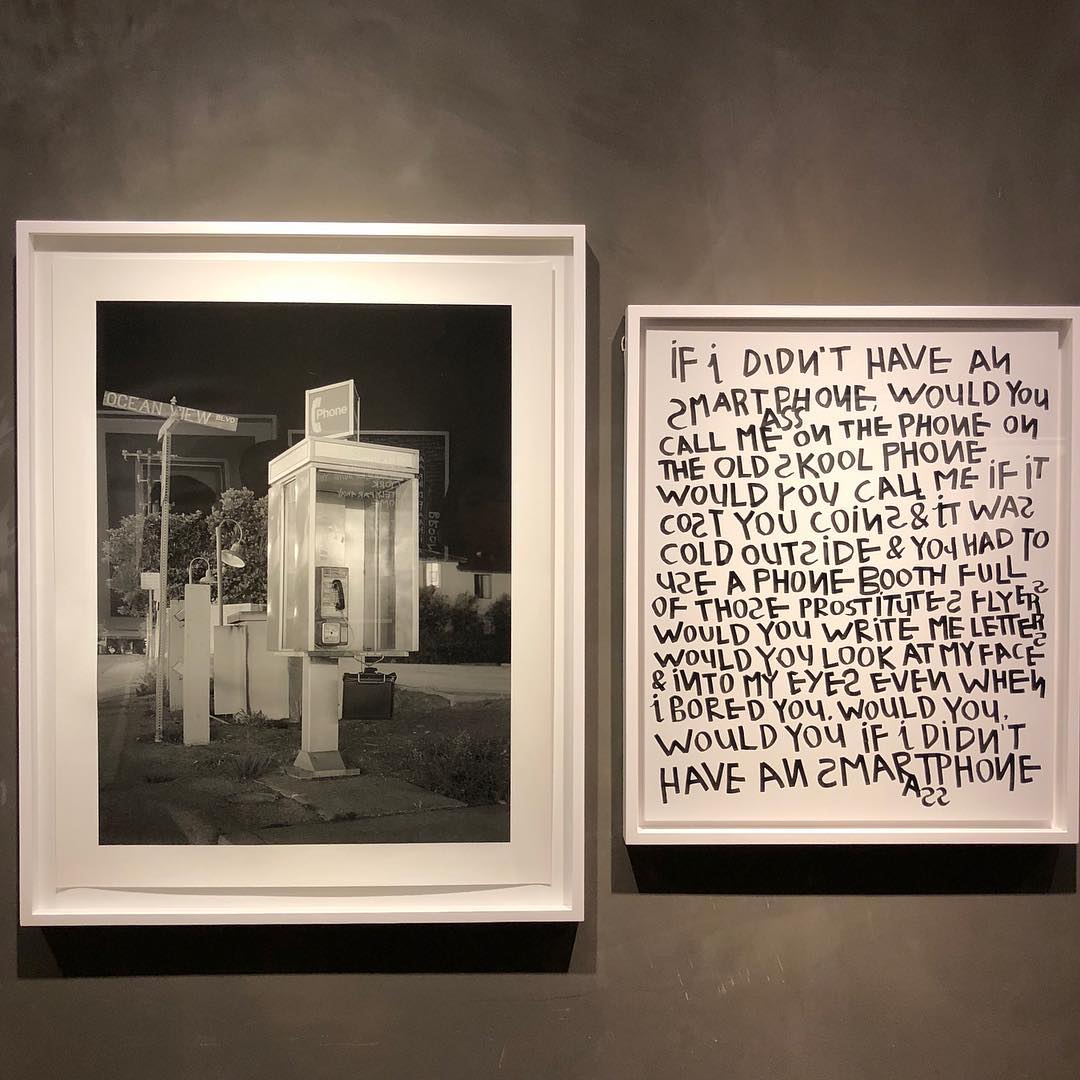 OCEAN VIEW BLVD
Phone
IF i DIDN'T HAVE AN
SMARTPHONE, WOULD YOU
ASS
CALL ME ON THE PHONE ON
THE OLD SKOOL PHONE
WOULD YOU CALL ME IF IT
COST YOU COINS & iT WAS
COLD OUTSIDE & YOU HAD TO
USE A PHONE BOOTH FULL
OF THOSE PROSTITUTES FLYERS
WOULD YOU WRITE ME LETTERS
WOULD YOU LOOK AT MY FACE
& iNTO MY EYES EVEN WHEN
i BORED YOU. WOULD YOU.
WOULD YOU iF i DiDN'T
HAVE AN SMARTPHONE
ASS